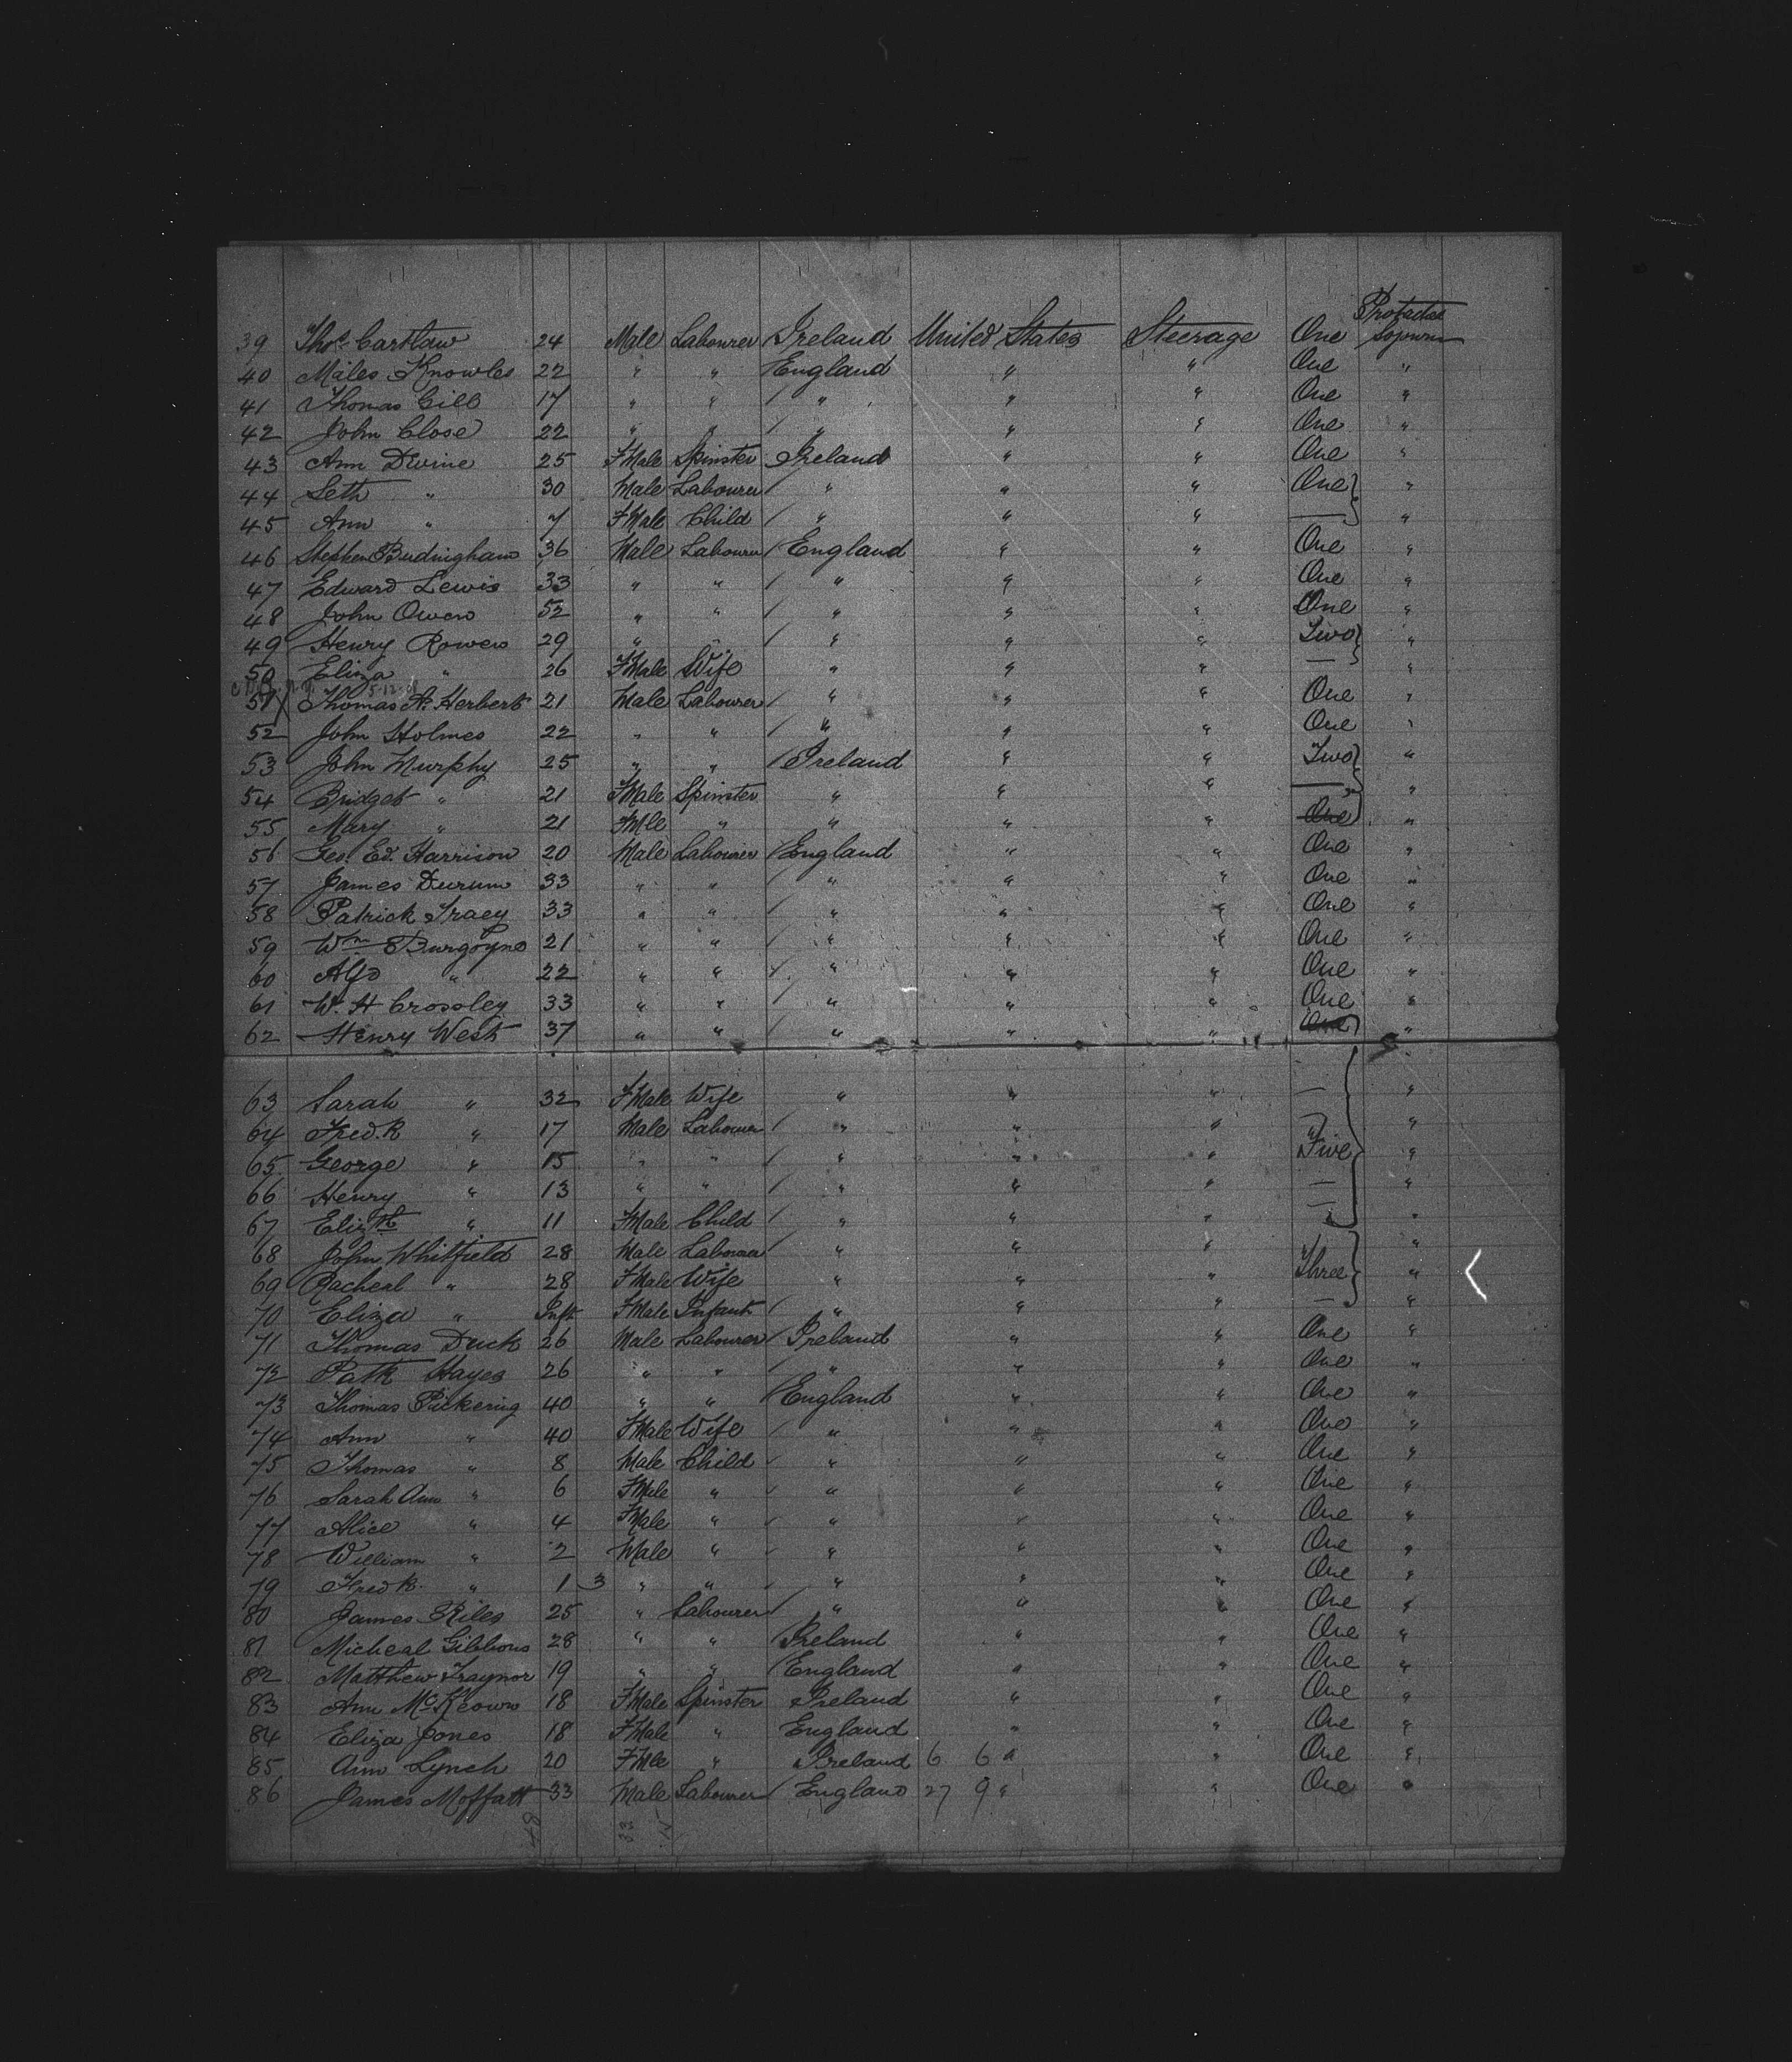 39 Thos. Carslaw 24 Male Labourer Ireland United States Steerage One Protracted Sojourn
40 Males Knowles 22 " " England " " One "
41 Thomas Gill 17 " " / " " " One "
42 John Close 22 " " / " " " One "
43 Ann Devine 25 FMale Spinster Ireland " " One "
44 Seth " 30 Male Labourer / " " " One } "
45 Ann " 7 FMale Child / " " " — "
46 Stephen Budingham 36 Male Labourer / England " " One "
47 Edward Lewis 33 " " / " " " One "
48 John Owen 52 " " / " " " One "
49 Henry Rowen 29 " " / " " " Two } "
50 Eliza " 26 FMale Wife " " " — "
51 X Thomas A. Herbert 21 Male Labourer / " " " One "
52 John Holmes 22 " " / " " " One "
53 John Murphy 25 " " / Ireland " " Two } "
54 Bridget " 21 FMale Spinster " " " — "
55 Mary " 21 FMle " " " " One "
56 Geo. Ed. Harrison 20 Male Labourer / England " " One "
57 James Durum 33 " " / " " " One "
58 Patrick Tracy 33 " " / " " " One "
59 Wm Burgoyne 21 " " / " " " One "
60 Alfd " 22 " " / " " " One "
61 W. H Crossley 33 " " / " " " One "
62 Henry West 37 " " / " " " One "
63 Sarah " 32 FMale Wife " " " — "
64 Fred.k " 17 Male Labourer / " " " — "
65 George " 15 " " / " " " Five } "
66 Henry " 13 " " / " " " — "
67 Elizth " 11 FMale Child / " " " — "
68 John Whitfield 28 Male Labourer / " " " "
69 Racheal " 28 FMale Wife " " " Three } "
70 Eliza " Inft FMale Infant / " " " — "
71 Thomas Duck 26 Male Labourer / Ireland " " One "
72 Patk Hayes 26 " " / " " " One "
73 Thomas Pickering 40 " " / England " " One "
74 Ann " 40 FMale Wife / " " " One "
75 Thomas " 8 Male Child / " " " One "
76 Sarah Ann " 6 FMale " / " " " One "
77 Alice " 4 FMale " / " " " One "
78 William " 2 Male " / " " " One "
79 Fredk. " 1 3 " " / " " " One "
80 James Riles 25 " Labourer / " " " One "
81 Micheal Gibbons 28 " " / Ireland " " One "
82 Matthew Traynor 19 " " / England " " One "
83 Ann McKeown 18 FMale Spinster Ireland " " One "
84 Eliza Jones 18 FMale " England " " One "
85 Ann Lynch 20 FMle " Ireland 6 6 " " One "
86 James Moffatt 33 Male Labourer / England 27 9 " " One "